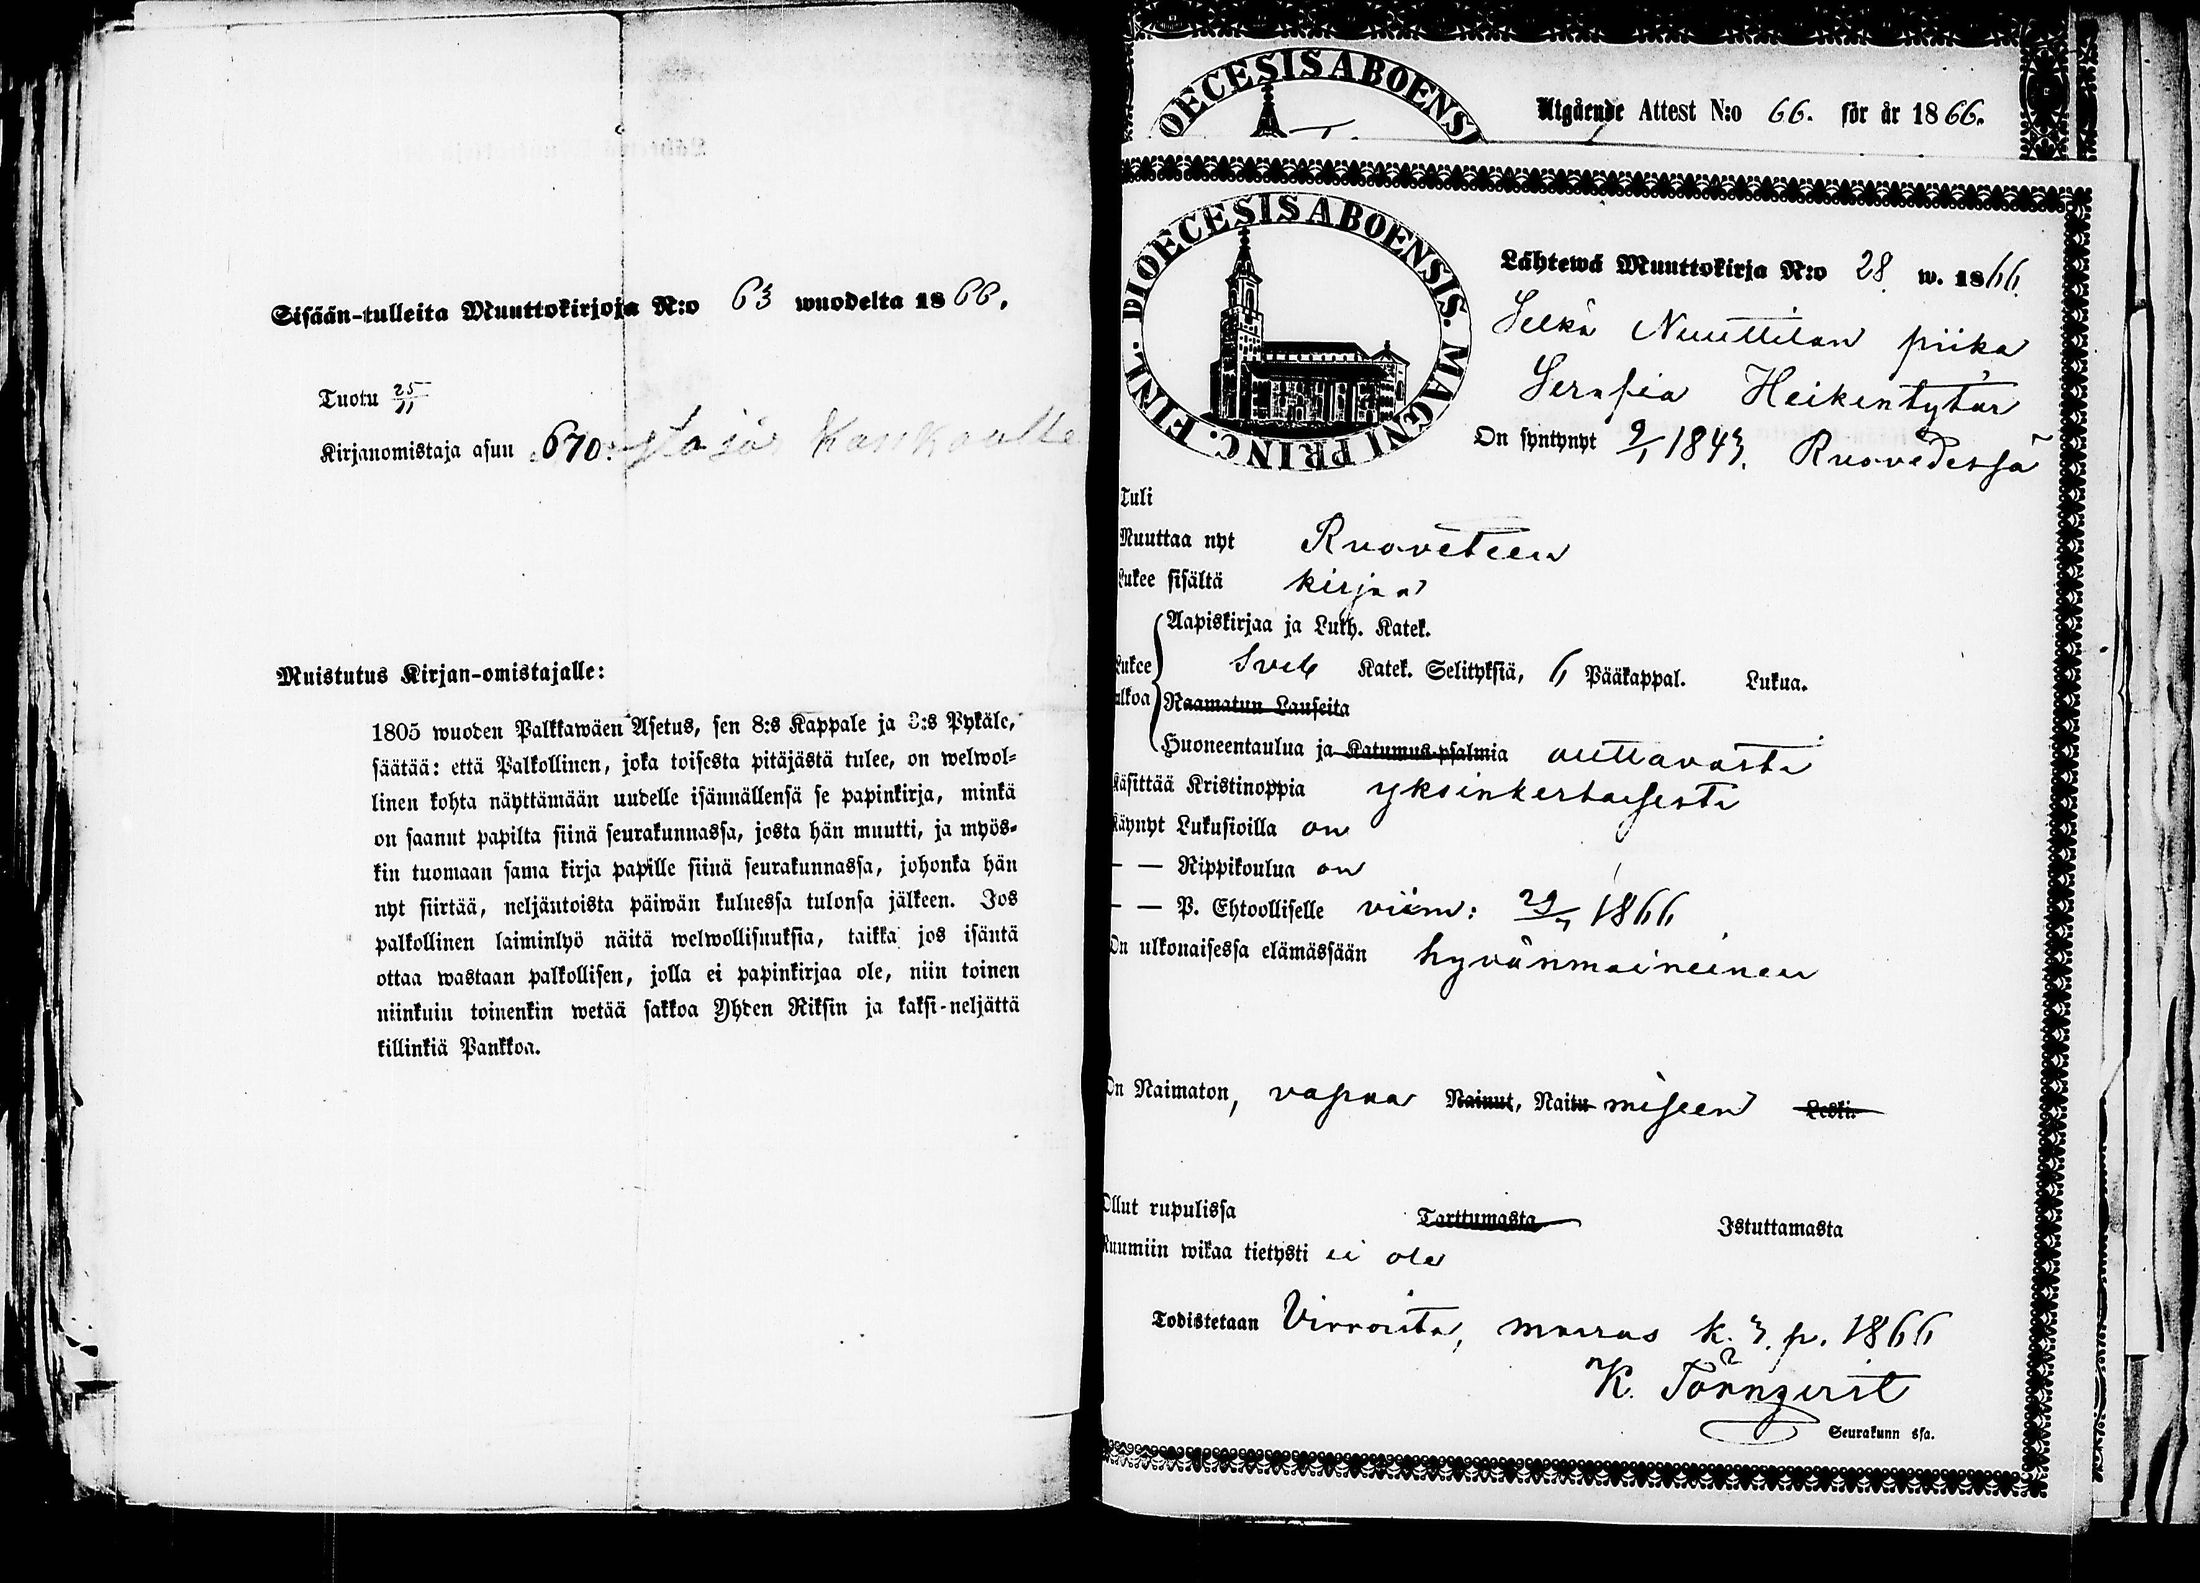 Sisään-tulleita Muuttokirjoja N:o 63 wuodelta 1866.
Tuotu 25/11
Kirjanomistaja asuu 670.
Muistutus Kirjan-omistajalle:
1805 wuoden Palkkawäen Asetus, sen 8:s Kappale ja 3:s Pykäle,
säätää: että Palkollinen, joka toisesta pitäjästä tulee, on welwol-
linen kohta näyttämään uudelle isännällensä se papinkirja, minkä
on saanut papilta siinä seurakunnassa, josta hän muutti, ja myös-
kin tuomaan sama kirja papille siinä seurakunnassa, johonka hän
nyt siirtää, neljäntoista päiwän kuluessa tulonsa jälkeen. Jos
palkollinen laiminlyö näitä welwollisuuksia, taikka jos isäntä
ottaa wastaan palkollisen, jolla ei papinkirjaa ole, niin toinen
niinkuin toinenkin wetää sakkoa Yhden Riksin ja kaksi-neljättä
killinkiä Pankkoa.
OECESIS ABOENSI
Utgående Attest N:o 66. för år 1866.
DIOECESIS ABOENSIS. MAGNI PRINC. FINL.
Lähtewä Muuttokirja N:o 28 w. 1866.
Nuuttilan piika
Serafia Heikintytär
On syntynyt 9/1 1843. Ruovedessä
Tuli
Muuttaa nyt Ruoveteen
Lukee sisältä kirjaa
Aapiskirjaa ja Luth. Katek.
Lukee
ulkoa
Sveb Katek. Selityksiä, 6 Pääkappal. Lukua.
Raamatun Lauseita
Huoneentaulua ja Katumus-psalmia auttavasti
Käsittää Kristinoppia yksinkertaisesti
Käynyt Lukusioilla on
— — Rippikoulua on
— — P. Ehtoolliselle viim: 29/7 1866
On ulkonaisessa elämässään hyvänmaineinen
On Naimaton, vapaa Nainut, Naitu miseen Leski.
Ollut rupulissa Tarttumasta Istuttamasta
Ruumiin wikaa tietysti ei ole
Todistetaan Virroista, marras k. 3. p. 1866
K. Törnqvist
Seurakunn ssa.